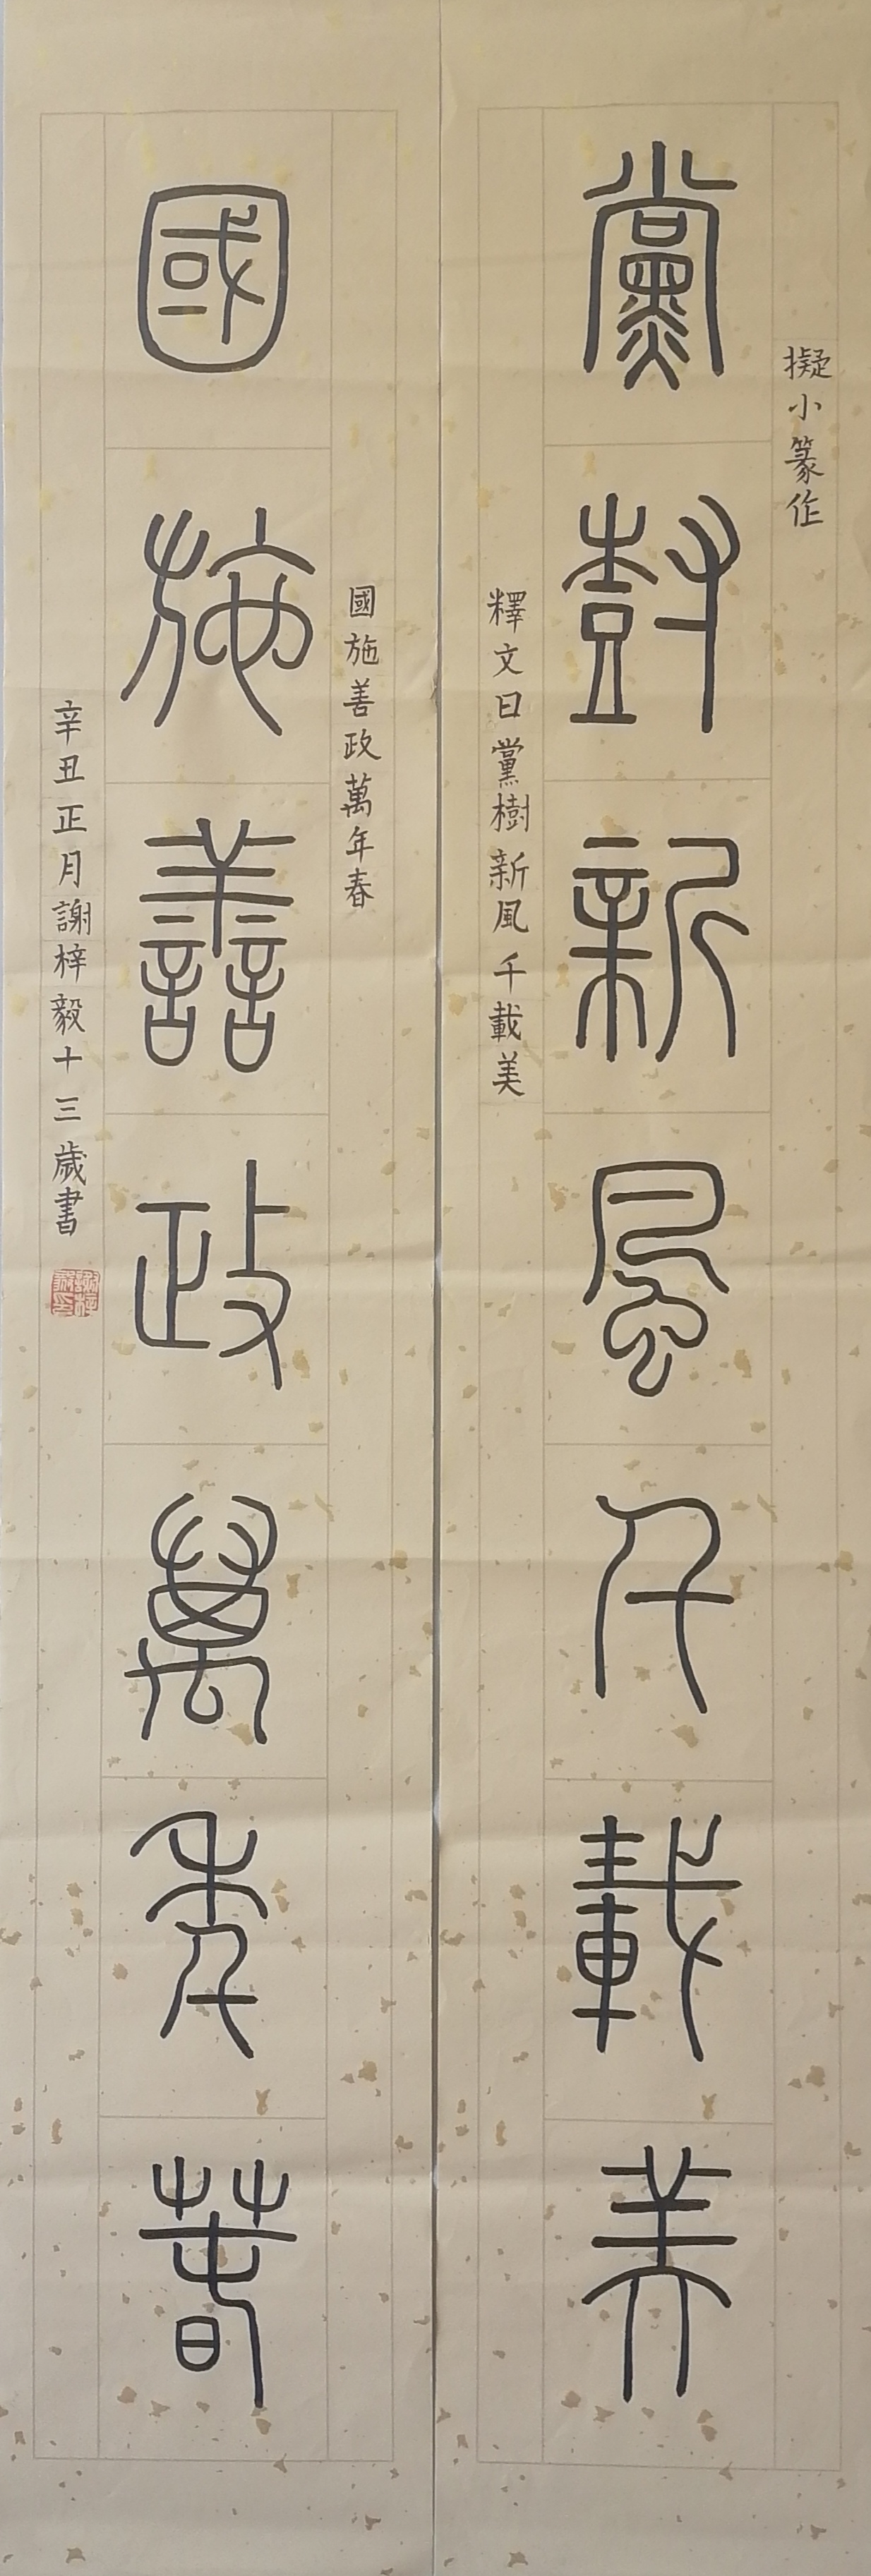 擬小篆作
黨尌新風千載美
釋文曰黨樹新風千載美
國施善政萬年春
國施善政萬年春
辛丑正月謝梓毅十三歲書